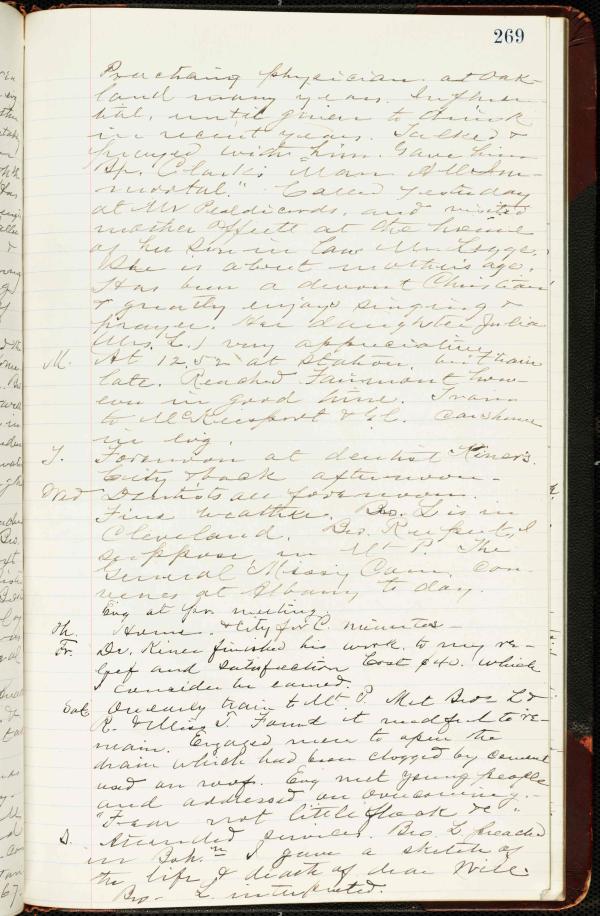 269
Practicing physician at Oak-
land many years. Influen-
tial, until given to drink
in recent years. Talked &
prayed with him. Gave him
Bp. Clark's "Man All Im-
mortal." Called yesterday
at Mr and visited
mother Offutt at the home
of her son in law Mr.
She is about mother's age.
Has been a devout Christian
& greatly enjoys singing &
prayer. Her daughter Julia
Mrs. L.) very appreciative.
M. At 12.52 at station, but train
late. Reached Fairmont how-
ever in good time. Tram
to McKeesport & El. car home
in evg.
T. Forenoon at dentist Kiner's.
City & back afternoon.
Wed Dentists all forenoon.
Fine weather. Bro. L is in
Cleveland. Bro. R. I
suppose in Mt P. The
General Missy Com. con-
venes at Albany to day.
Evg at pr. meeting.
Th. Home. & City for C. minutes-
Fr. Dr. Kiner finished his work to my re-
lief and satisfaction Cost $40. which
I consider he earned.
Sat On early train to Mt. P. Met Bros L &
R. & Miss T. Found it needful to re-
main. Engaged men to open the
drain which had been clogged by cement
used on roof. Evg met young people
and addressed on overcoming.-
"Fear not little flock &c"
S. Attended services. Bro. L preached
in Boh.n I gave a sketch of
the life & death of dear Will.
Bro- L. interpreted.